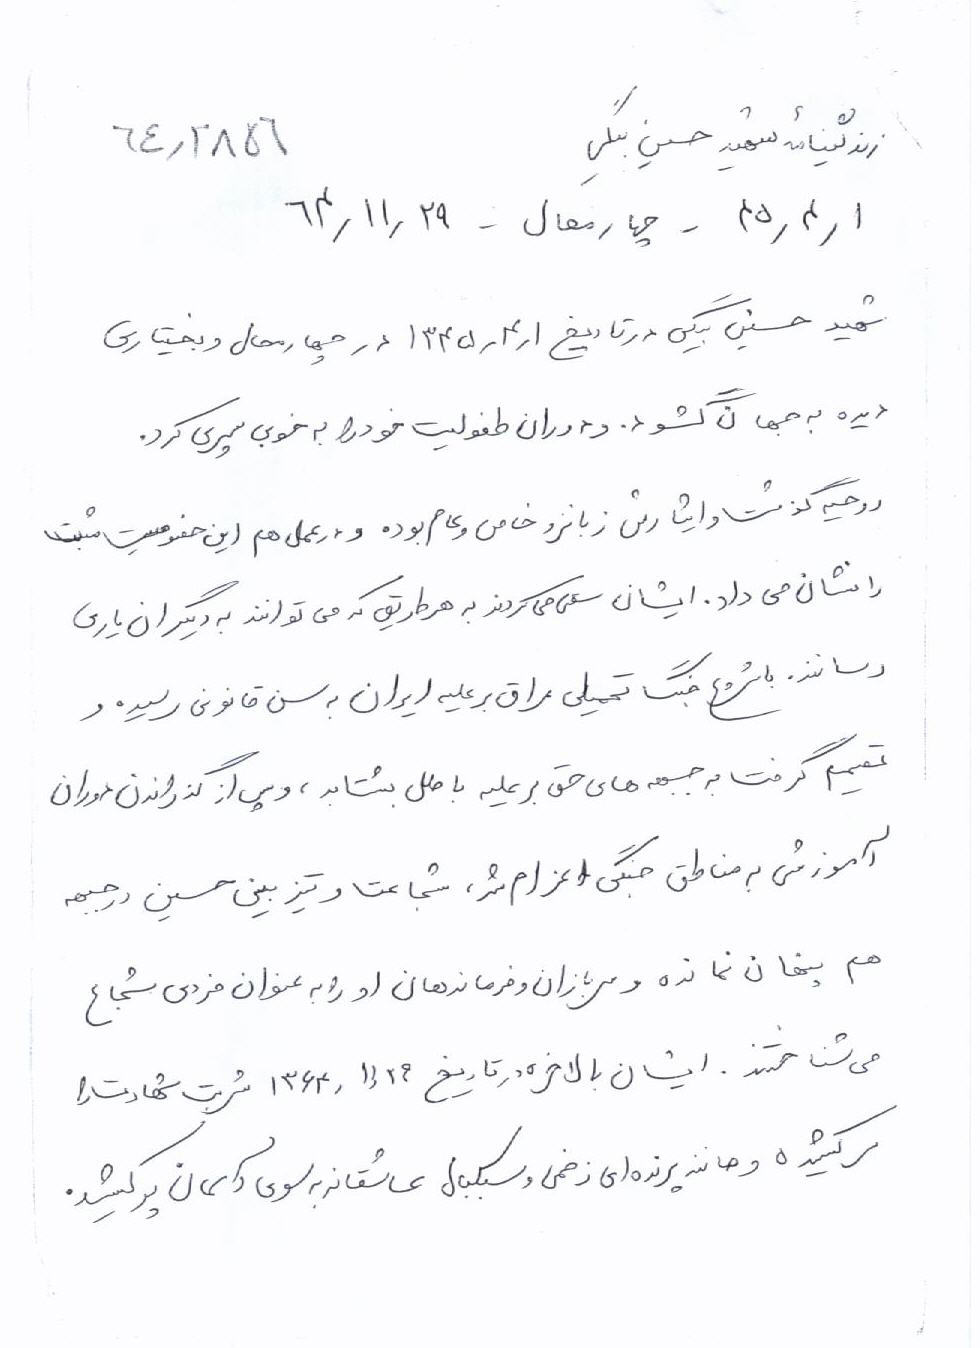 زندگینامهٔ شهید حسین بیگی
٦٤٫٢٨٥٦
۴۵٫۴٫۱ - چهارمحال - ۶۴٫۱۱٫۲۹
شهید حسین بیگی در تاریخ ۱۳۴۵٫۴٫۱ در چهارمحال و بختیاری
دیده به جهان گشود. و دوران طفولیت خود را به خوبی سپری کرد.
روحیه گذشت و ایثارش زبانزد خاص و عام بوده و در عمل هم این خصوصیت مثبت
را نشان می داد. ایشان سعی می کردند به هر طریق که می توانند به دیگران یاری
رسانند. با شروع جنگ تحمیلی عراق بر علیه ایران به سن قانونی رسیده و
تصمیم گرفت به جبهه های حق بر علیه باطل بشتابد، و پس از گذراندن دوران
آموزشی به مناطق جنگی اعزام شد، شجاعت و تیزبینی حسین در جبهه
هم پنهان نمانده و سربازان و فرماندهان او را به عنوان فردی شجاع
می شناختند. ایشان بالاخره در تاریخ ۱۳۶۴٫۱۱٫۲۹ شربت شهادت را
سر کشیده و مانند پرنده ای زخمی و سبکبال عاشقانه به سوی آسمان پر کشید.